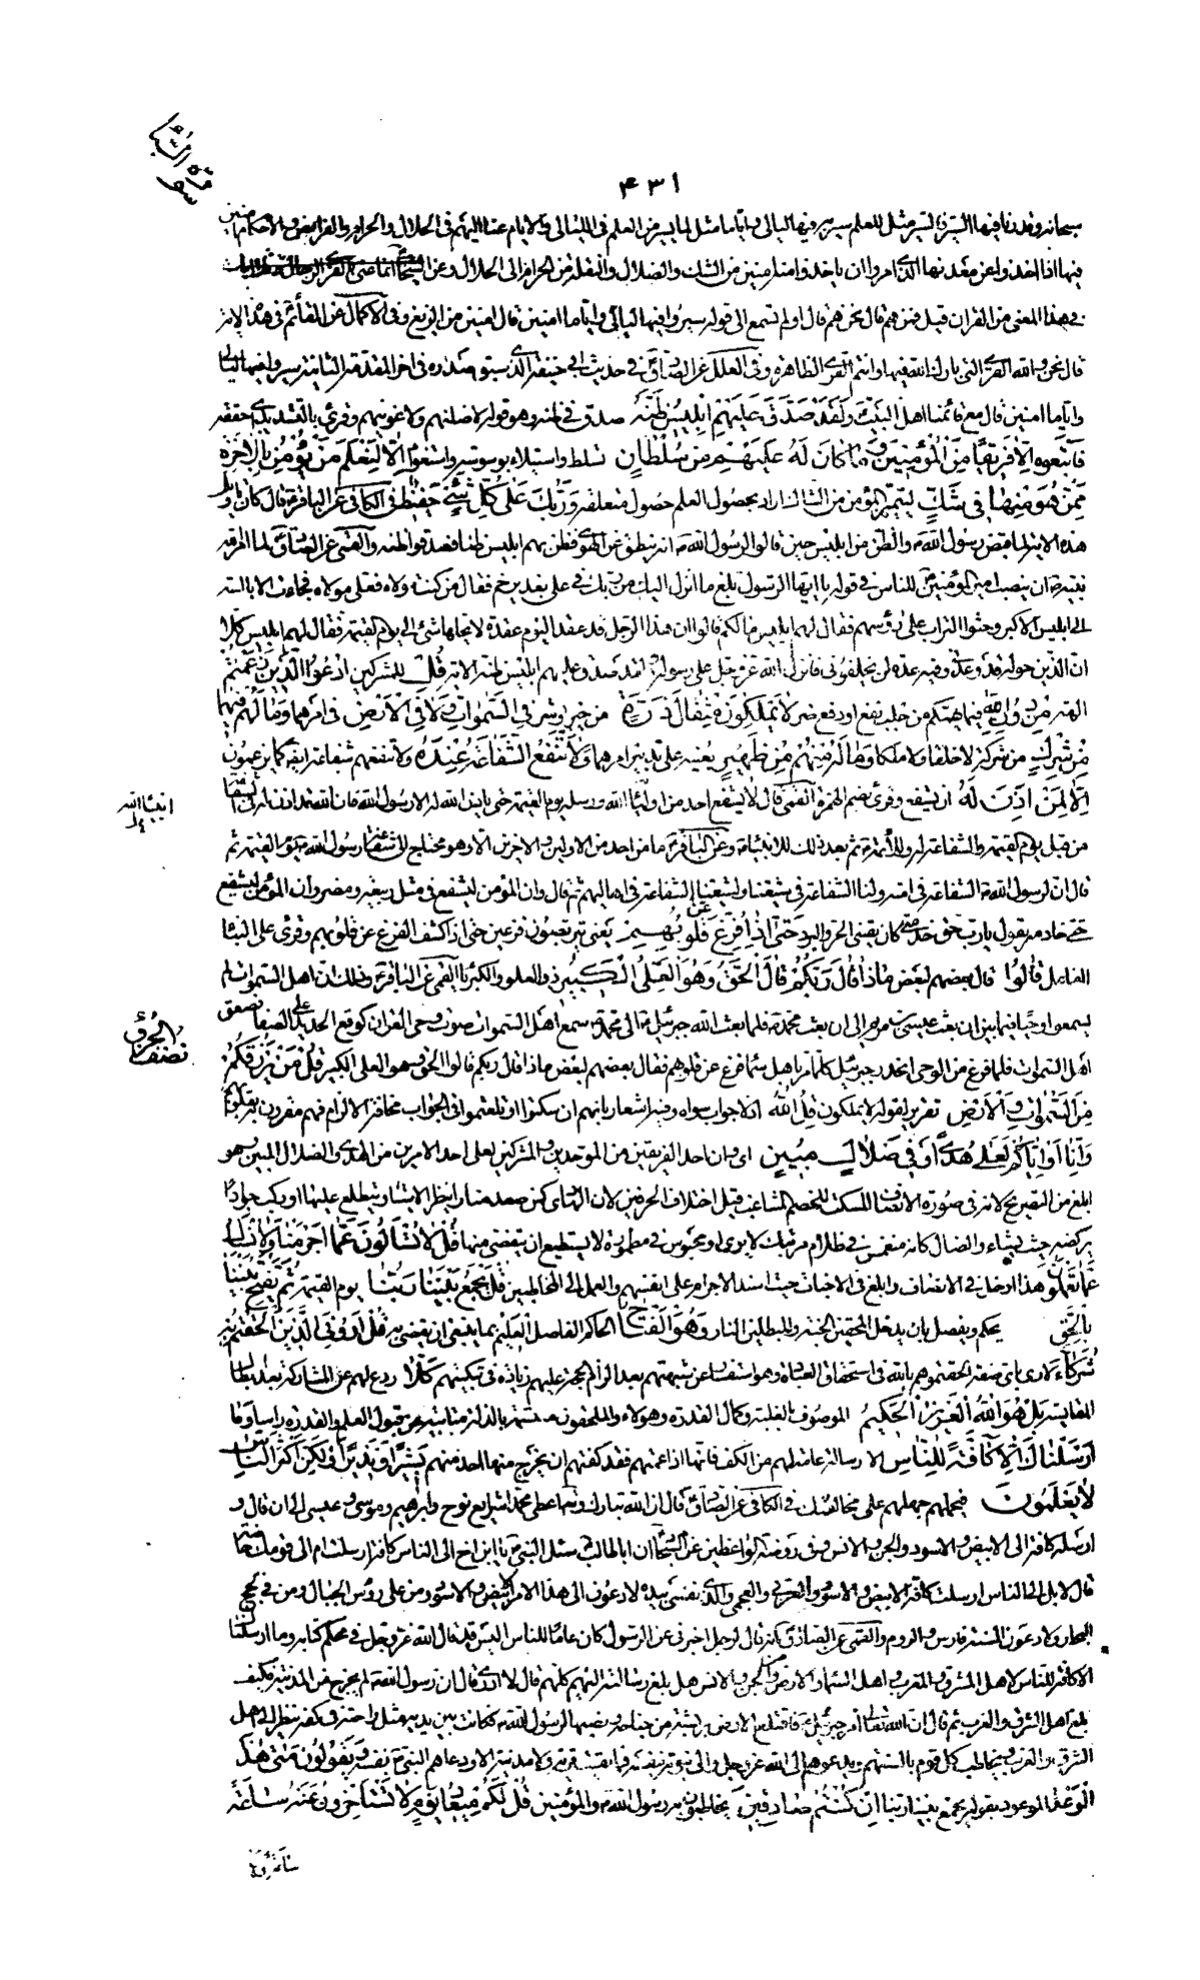 سورة السبا
٤٣١
سبحانه وقدرنا فيها السير فالسير مثل للعلم سير به فيها ليالي واياما مثل لما يسير من العلم في الليالي والايام عنا اليهم في الحلال والحرام والفرايض والاحكام امنين
فيها اذا اخذوا عن معدنها الذي امروا ان ياخذوا منه امنين من الشك والضلال والنقلة من الحرام الى الحلال وعن
في هذا المعنى من القران قيل فمن هم قال نحن هم قال اولم تسمع الى قوله سيروا فيها ليالي واياما امنين قال امنين من الزيغ وفي الاكمال عن القائم في هذه الاية
قال نحن والله القرى التي بارك الله فيها وانتم القرى الظاهرة وفي العلل عن الصادق في حديث ابي حنيفة الذي سبق صدره في اخر المقدمة الثانية سيروا فيها ليالي
واياما امنين قال مع قائمنا اهل البيت وَلَقَدْ صَدَّقَ عَلَيْهِمْ اِبْلِيسُ ظَنَّهُ صدق في ظنه وهو قوله لاضلنهم ولاغوينهم وقرئ بالتشديد اي حققه
فَاتَّبَعُوهُ اِلَّا فَرِيقًا مِنَ الْمُؤْمِنِينَ وَمَا كَانَ لَهُ عَلَيْهِمْ مِنْ سُلْطَانٍ تسلط واستيلاء بوسوسة واستغواء اِلَّا لِنَعْلَمَ مَنْ يُؤْمِنُ بِالْاٰخِرَةِ
مِمَّنْ هُوَ مِنْهَا فِي شَكٍّ ليتميز المؤمن من الشاك اراد بحصول العلم حصول متعلقه وَرَبُّكَ عَلٰى كُلِّ شَيْءٍ حَفِيظٌ في الكافي عن الباقر قال كان تاويل
هذه الاية لما قبض رسول الله والظن من ابليس حين قالوا لرسول الله انه ينطق عن الهوى فظن بهم ابليس ظنا فصدقوا ظنه والقمي عن الصادق لما امر الله
نبيه ان ينصب امير المؤمنين للناس في قوله يا ايها الرسول بلغ ما انزل اليك من ربك في علي بغدير خم فقال من كنت مولاه فعلي مولاه فجاءت الابالسة
الى ابليس الاكبر وحثوا التراب على رؤسهم فقال لهم ابليس ما لكم قالوا ان هذا الرجل قد عقد اليوم عقدة لا يحلها شئ الى يوم القيمة فقال لهم ابليس كلا
ان الذين حوله قد وعدوني فيه عدة لن يخلفوني فانزل الله عز وجل على رسوله ولقد صدق عليهم ابليس ظنه الاية قُلِ للمشركين ادْعُوا الَّذِينَ زَعَمْتُمْ
الهة مِنْ دُونِ اللهِ فيما يهمكم من جلب نفع او دفع ضر لَا يَمْلِكُونَ مِثْقَالَ ذَرَّةٍ من خير او شر فِي السَّمٰوَاتِ وَلَا فِي الْاَرْضِ في امر ما وَمَا لَهُمْ فِيهِمَا
مِنْ شِرْكٍ من شركة لا خلقا ولا ملكا وَمَا لَهُ مِنْهُمْ مِنْ ظَهِيرٍ يعينه على تدبير امرهما وَلَا تَنْفَعُ الشَّفَاعَةُ عِنْدَهُ ولا تنفعهم شفاعة ايضا كما يزعمون
اِلَّا لِمَنْ اَذِنَ لَهُ ان يشفع وقرئ بضم الهمزة القمي قال لا يشفع احد من انبياء الله ورسله يوم القيمة حتى ياذن الله له الا رسول الله فان الله قد اذن له في الشفاعة
انبياء الله
من قبل يوم القيمة والشفاعة له وللائمة ثم بعد ذلك للانبياء وعن الباقر ما من احد من الاولين والاخرين الا وهو محتاج الى شفاعة رسول الله يوم القيمة ثم
قال ان لرسول الله الشفاعة في امته ولنا الشفاعة في شيعتنا ولشيعتنا الشفاعة في اهاليهم ثم قال وان المؤمن ليشفع في مثل ربيعة ومضر وان المؤمن ليشفع
حتى خادمه يقول يا رب حق خدمتي كان يقيني الحر والبرد حَتّٰى اِذَا فُزِّعَ عَنْ قُلُوبِهِمْ يعني يتربصون فزعين حتى اذا كشف الفزع عن قلوبهم وقرئ على البناء
الفاعل قَالُوا قال بعضهم لبعض مَاذَا قَالَ رَبُّكُمْ قَالُوا الْحَقَّ وَهُوَ الْعَلِيُّ الْكَبِيرُ ذو العلو والكبرياء القمي عن الباقر وذلك ان اهل السموات لم
يسمعوا وحيا فيما بين ان بعث عيسى بن مريم الى ان بعث محمد فلما بعث الله جبرئيل الى محمد سمع اهل السموات صوت وحي القران كوقع الحديد على الصفا فصعق
اهل السموات فلما فرغ من الوحي انحدر جبرئيل كلما مر باهل سماء فزع عن قلوبهم فقال بعضهم لبعض ماذا قال ربكم قالوا الحق وهو العلي الكبير قُلْ مَنْ يَرْزُقُكُمْ
مِنَ السَّمٰوَاتِ وَالْاَرْضِ تقرير لقوله لا يملكون قُلِ اللهُ اذ لا جواب سواه وفيه اشعار بانهم ان سكتوا او تلعثموا في الجواب مخافة الالزام فهم مقرون به بقلوبهم
وَاِنَّا اَوْ اِيَّاكُمْ لَعَلٰى هُدًى اَوْ فِي ضَلَالٍ مُبِينٍ اي وان احد الفريقين من الموحدين والمشركين لعلى احد الامرين من الهدى والضلال المبين وهو
ابلغ من التصريح لانه في صورة الانصاف المسكت للخصم المشاغب قيل اختلاف الحرفين لان الهادي كمن صعد منارا ينظر الاشياء ويتطلع عليها او ركب جوادا
يركضه حيث يشاء والضال كانه منغمس في ظلام مرتبك لا يرى او محبوس في مطمورة لا يستطيع ان يتفصى منها قُلْ لَا تُسْئَلُونَ عَمَّا اَجْرَمْنَا وَلَا نُسْئَلُ
عَمَّا تَعْمَلُونَ هذا ادخل في الانصاف وابلغ في الاخبات حيث اسند الاجرام على انفسهم والعمل الى المخاطبين قُلْ يَجْمَعُ بَيْنَنَا رَبُّنَا يوم القيمة ثُمَّ يَفْتَحُ بَيْنَنَا
بِالْحَقِّ يحكم ويفصل بان يدخل المحقين الجنة والمبطلين النار وَهُوَ الْفَتَّاحُ الحاكم الفاصل الْعَلِيمُ بما ينبغي ان يقضى به قُلْ اَرُونِيَ الَّذِينَ اَلْحَقْتُمْ بِهِ
شُرَكَاءَ لارى باي صفة الحقتموهم بالله في استحقاق العبادة وهو استفسار عن شبهتهم بعد الزام الحجة عليهم زيادة في تبكيتهم كَلَّا ردع لهم عن المشاركة بعد ابطال
المقايسة بَلْ هُوَ اللهُ الْعَزِيزُ الْحَكِيمُ الموصوف بالغلبة وكمال القدرة وهؤلاء والملحقون به متسمة بالذلة متابية عن قبول العلم والقدرة راسا وَمَا
اَرْسَلْنَاكَ اِلَّا كَافَّةً لِلنَّاسِ الا رسالة عامة لهم من الكف فانها اذا عمتهم فقد كفتهم ان يخرج منها احد منهم بَشِيرًا وَنَذِيرًا وَلٰكِنَّ اَكْثَرَ النَّاسِ
لَا يَعْلَمُونَ فيحملهم جهلهم على مخالفتك في الكافي عن الصادق قال ان الله تبارك وتعالى اعطى محمدا شرايع نوح وابراهيم وموسى وعيسى الى ان قال و
ارسله كافة الى الابيض والاسود والجن والانس وفي روضة الواعظين عن السجاد ان ابا طالب سئل النبي يا ابن اخ الى الناس كافة ارسلت ام الى قومك خاصة
قال لا بل الى الناس ارسلت كافة الابيض والاسود والعربي والعجمي والذي نفسي بيده لادعون الى هذا الامر الابيض والاسود ومن على رؤس الجبال ومن في لجج
البحار ولادعون السنة فارس والروم والقمي عن الصادق انه قال لرجل اخبرني عن الرسول كان عاما للناس اليس قد قال الله عز وجل في محكم كتابه وما ارسلناك
الا كافة للناس لاهل المشرق والمغرب واهل السماء والارض من الجن والانس هل بلغ رسالته اليهم كلهم قال لا ادري قال ان رسول الله لم يخرج من المدينة فكيف
بلغ اهل الشرق والغرب ثم قال ان الله تعالى امر جبرئيل فاقتلع الارض بريشة من جناحه ونصبها لرسول الله فكانت بين يديه مثل راحته في كفه ينظر الى اهل
الشرق والغرب ويخاطب كل قوم بالسنتهم ويدعوهم الى الله عز وجل والى نبوته بنفسه فما بقيت قرية ولا مدينة الا ودعاهم النبي بنفسه وَيَقُولُونَ مَتٰى هٰذَا
الْوَعْدُ الموعود بقوله يجمع بيننا ربنا اِنْ كُنْتُمْ صَادِقِينَ يخاطبون به رسول الله والمؤمنين قُلْ لَكُمْ مِيعَادُ يَوْمٍ لَا تَسْتَأْخِرُونَ عَنْهُ سَاعَةً